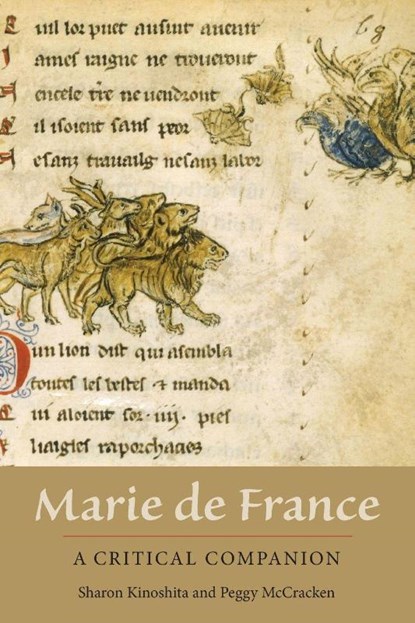 uil lor puet ausint auenir
ames raigne ne troueront
encele tr̄e ne uendront
il isoient sanz peor
esanz trauailg nesanz labor
Dun lion dist qui asembla
toutes les bestes ⁊ manda
ui aloient sor .iiij. pies
Marie de France
A CRITICAL COMPANION
Sharon Kinoshita and Peggy McCracken